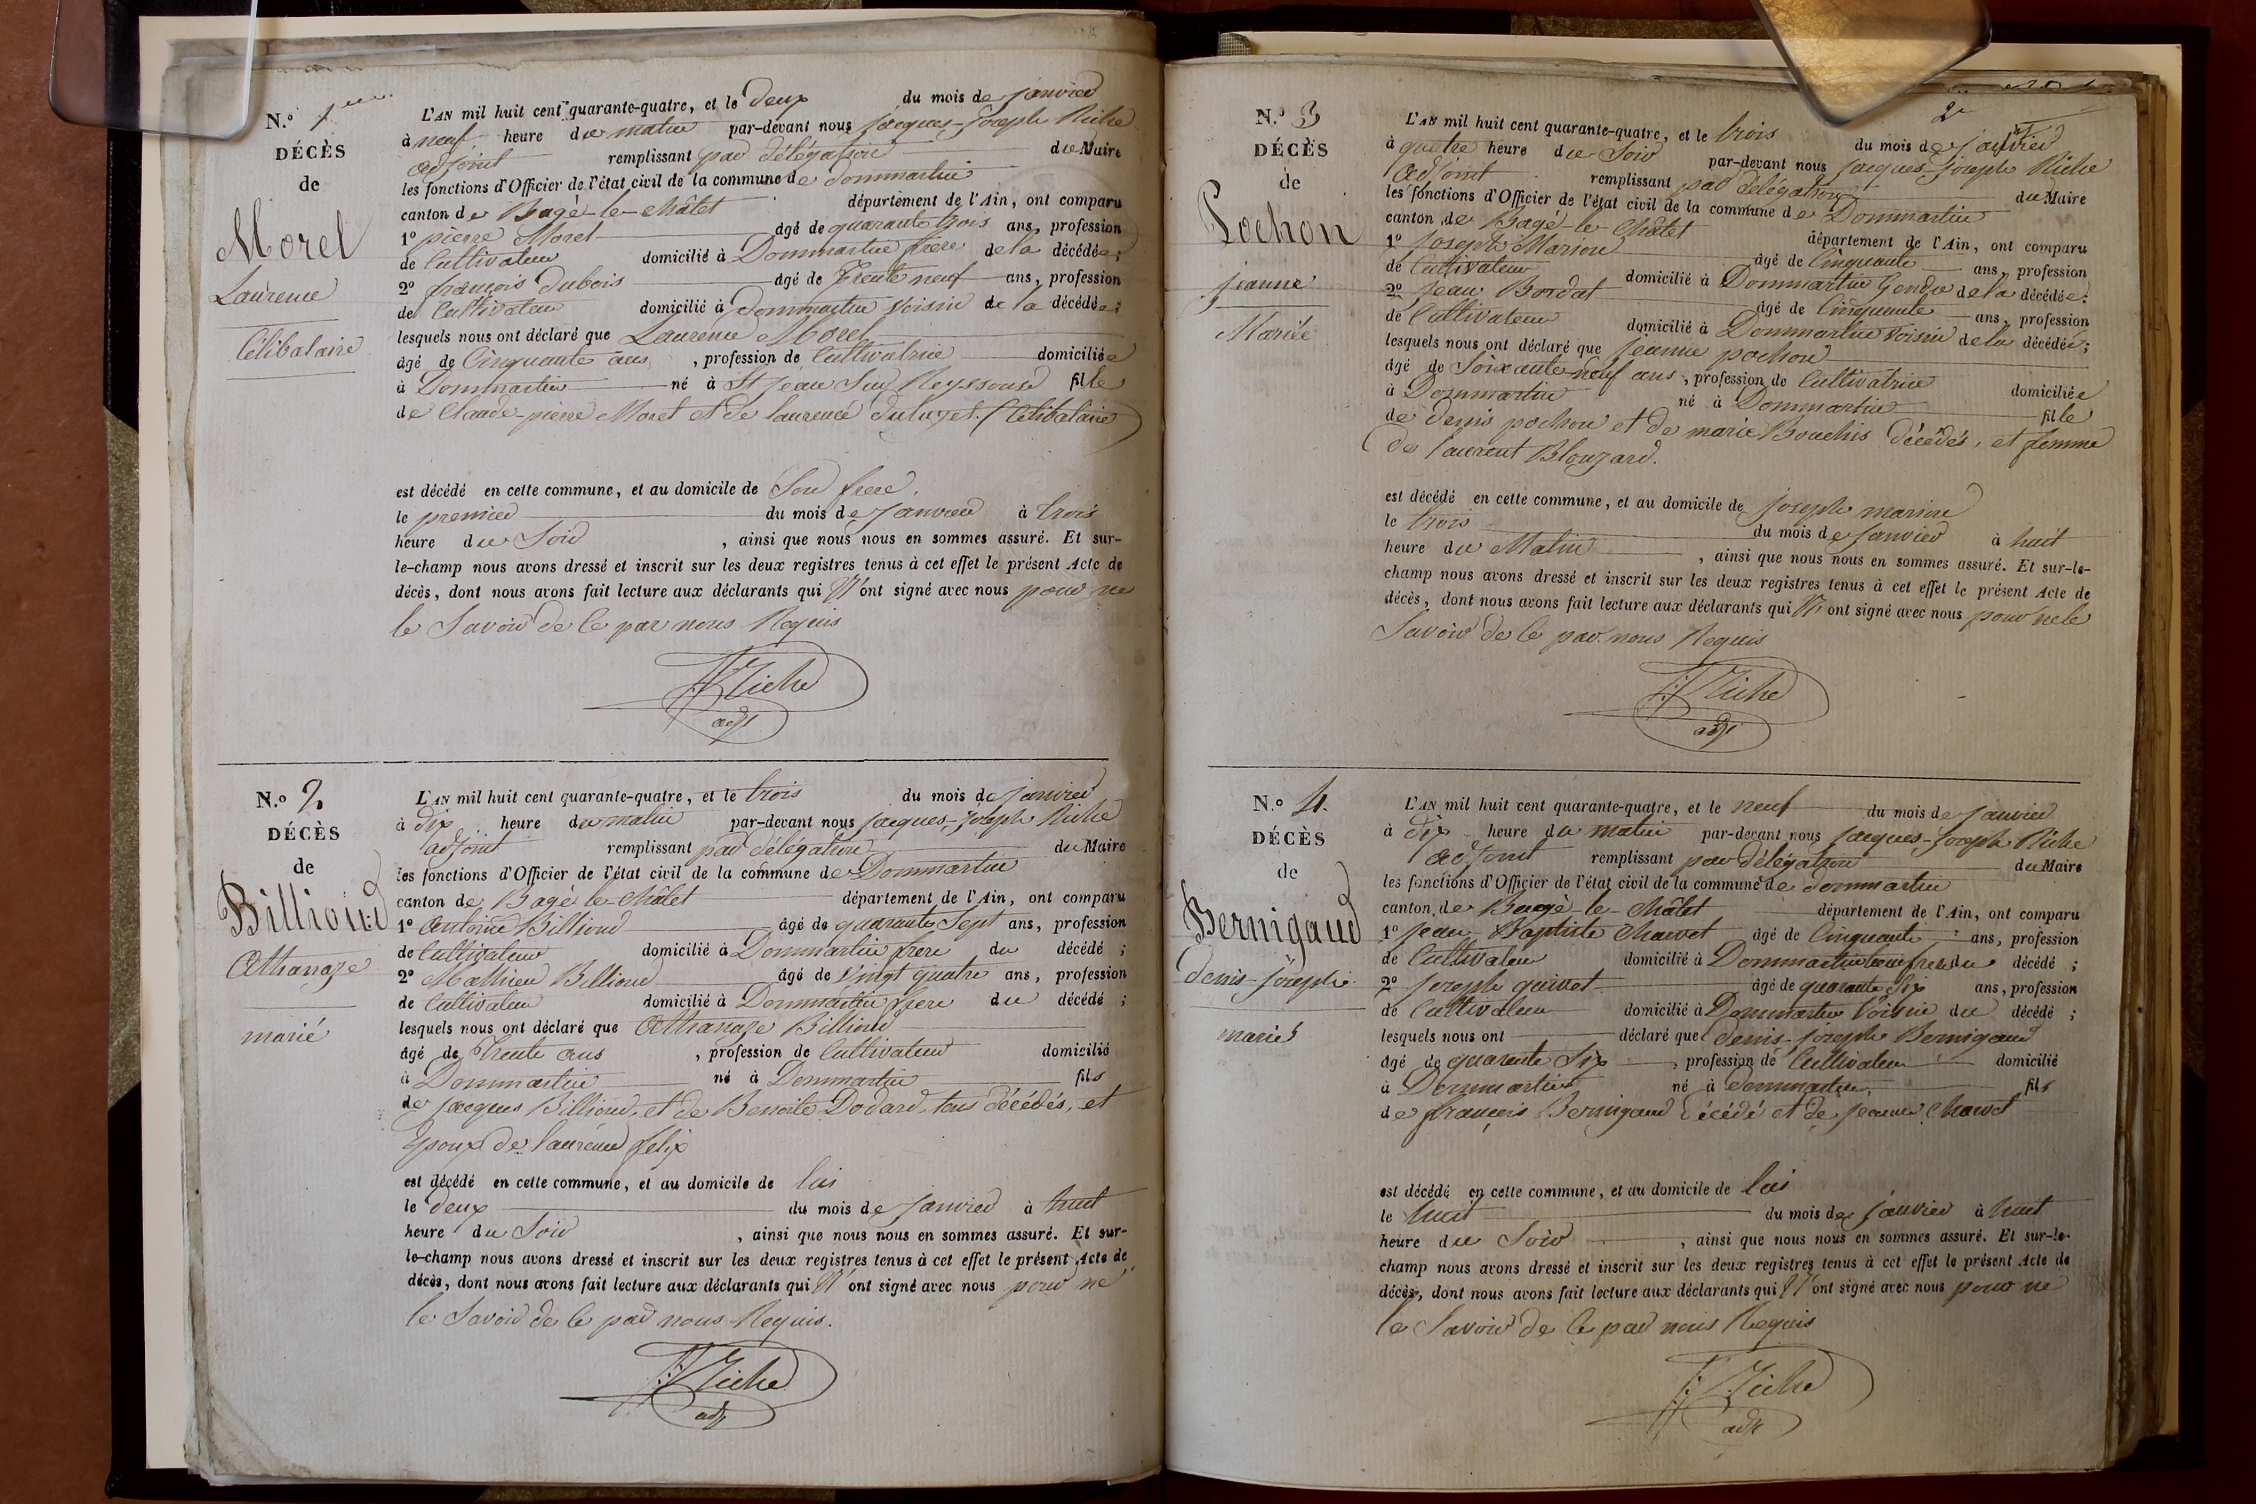 N.o 1er
DÉCÈS
de
Morel
Laurence
Célibataire
L'AN mil huit cent quarante-quatre, et le deux du mois de janvier
à neuf heure du matin par-devant nous jacques-joseph Riche
adjoint remplissant par délégation du Maire
les fonctions d'Officier de l'état civil de la commune de Dommartin
canton de Bagé-le-Châtel département de l'Ain, ont comparu
1o pierre Morel âgé de quarante trois ans, profession
de Cultivateur domicilié à Dommartin frere de la décédée;
2o françois Dubois âgé de Trente neuf ans, profession
de Cultivateur domicilié à Dommartin voisin de la décédée;
lesquels nous ont déclaré que Laurence Morel
âgé de Cinquante ans, profession de Cultivatrice domiciliée
à Dommartin né à St jean Sur Reyssouse fille
de Claude-pierre Morel et de laurence (Célibataire)
est décédé en cette commune, et au domicile de Son frere.
le premier du mois de janvier à trois
heure du Soir, ainsi que nous nous en sommes assuré. Et sur-
le-champ nous avons dressé et inscrit sur les deux registres tenus à cet effet le présent Acte de
décès, dont nous avons fait lecture aux déclarants qui N'ont signé avec nous pour ne
le Savoir de Ce par nous Requis
JJ Riche
adjt
N.o 2
DÉCÈS
de
Billioud
Athanaze
marié
L'AN mil huit cent quarante-quatre, et le trois du mois de janvier
à dix heure du matin par-devant nous jacques-joseph Riche
adjoint remplissant par délégation du Maire
les fonctions d'Officier de l'état civil de la commune de Dommartin
canton de Bagé-le-Châtel département de l'Ain, ont comparu
1o Antoine Billioud âgé de quarante Sept ans, profession
de Cultivateur domicilié à Dommartin frere du décédé;
2o Mathieu Billioud âgé de Vingt quatre ans, profession
de Cultivateur domicilié à Dommartin frere du décédé;
lesquels nous ont déclaré que Athanaze Billioud
âgé de Trente ans, profession de Cultivateur domicilié
à Dommartin né à Dommartin fils
de jacques Billioud, et de Benoite Dodard, tous décédés, et
Epoux de laurence felix
est décédé en cette commune, et au domicile de lui
le deux du mois de janvier à huit
heure du Soir, ainsi que nous nous en sommes assuré. Et sur-
le-champ nous avons dressé et inscrit sur les deux registres tenus à cet effet le présent Acte de
décès, dont nous avons fait lecture aux déclarants qui N'ont signé avec nous pour ne
le Savoir de Ce par nous Requis.
JJ Riche
adjt
2e
N.o 3
DÉCÈS
de
Pochon
jeanne
Mariée
L'AN mil huit cent quarante-quatre, et le trois du mois de janvier
à quatre heure du Soir par-devant nous jacques-joseph Riche
adjoint remplissant par délégation du Maire
les fonctions d'Officier de l'état civil de la commune de Dommartin
canton de Bagé-le-Châtel département de l'Ain, ont comparu
1o joseph Marion âgé de Cinquante ans, profession
de Cultivateur domicilié à Dommartin Gendre de la décédée;
2o jean Bordat âgé de Cinquante ans, profession
de Cultivateur domicilié à Dommartin voisin de la décédée;
lesquels nous ont déclaré que jeanne pochon
âgé de Soixante neuf ans, profession de Cultivatrice domiciliée
à Dommartin né à Dommartin fille
de denis pochon et de marie Bouchis décédés, et femme
de laurent Blouzard.
est décédé en cette commune, et au domicile de joseph marion
le trois du mois de janvier à huit
heure du Matin, ainsi que nous nous en sommes assuré. Et sur-le-
champ nous avons dressé et inscrit sur les deux registres tenus à cet effet le présent Acte de
décès, dont nous avons fait lecture aux déclarants qui N'ont signé avec nous pour ne le
Savoir de Ce par nous Requis
JJ Riche
adjt
N.o 4.
DÉCÈS
de
Bernigaud
denis-joseph
marié
L'AN mil huit cent quarante-quatre, et le neuf du mois de janvier
à dix heure du matin par-devant nous jacques-joseph Riche
adjoint remplissant par délégation du Maire
les fonctions d'Officier de l'état civil de la commune de Dommartin
canton de Baugé-le-Châtel département de l'Ain, ont comparu
1o jean-Baptiste Charvet âgé de Cinquante ans, profession
de Cultivateur domicilié à Dommartin beau frere du décédé;
2o joseph guivet âgé de quarante Six ans, profession
de Cultivateur domicilié à Dommartin Voisin du décédé;
lesquels nous ont déclaré que denis-joseph Bernigaud
âgé de quarante Six, profession de Cultivateur domicilié
à Dommartin né à Dommartin fils
de françois Bernigaud décédé et de jeanne Charvet
est décédé en cette commune, et au domicile de lui
le huit du mois de janvier à huit
heure du Soir, ainsi que nous nous en sommes assuré. Et sur-le-
champ nous avons dressé et inscrit sur les deux registres tenus à cet effet le présent Acte de
décès, dont nous avons fait lecture aux déclarants qui N'ont signé avec nous pour ne
le Savoir de Ce par nous Requis
JJ Riche
adjt